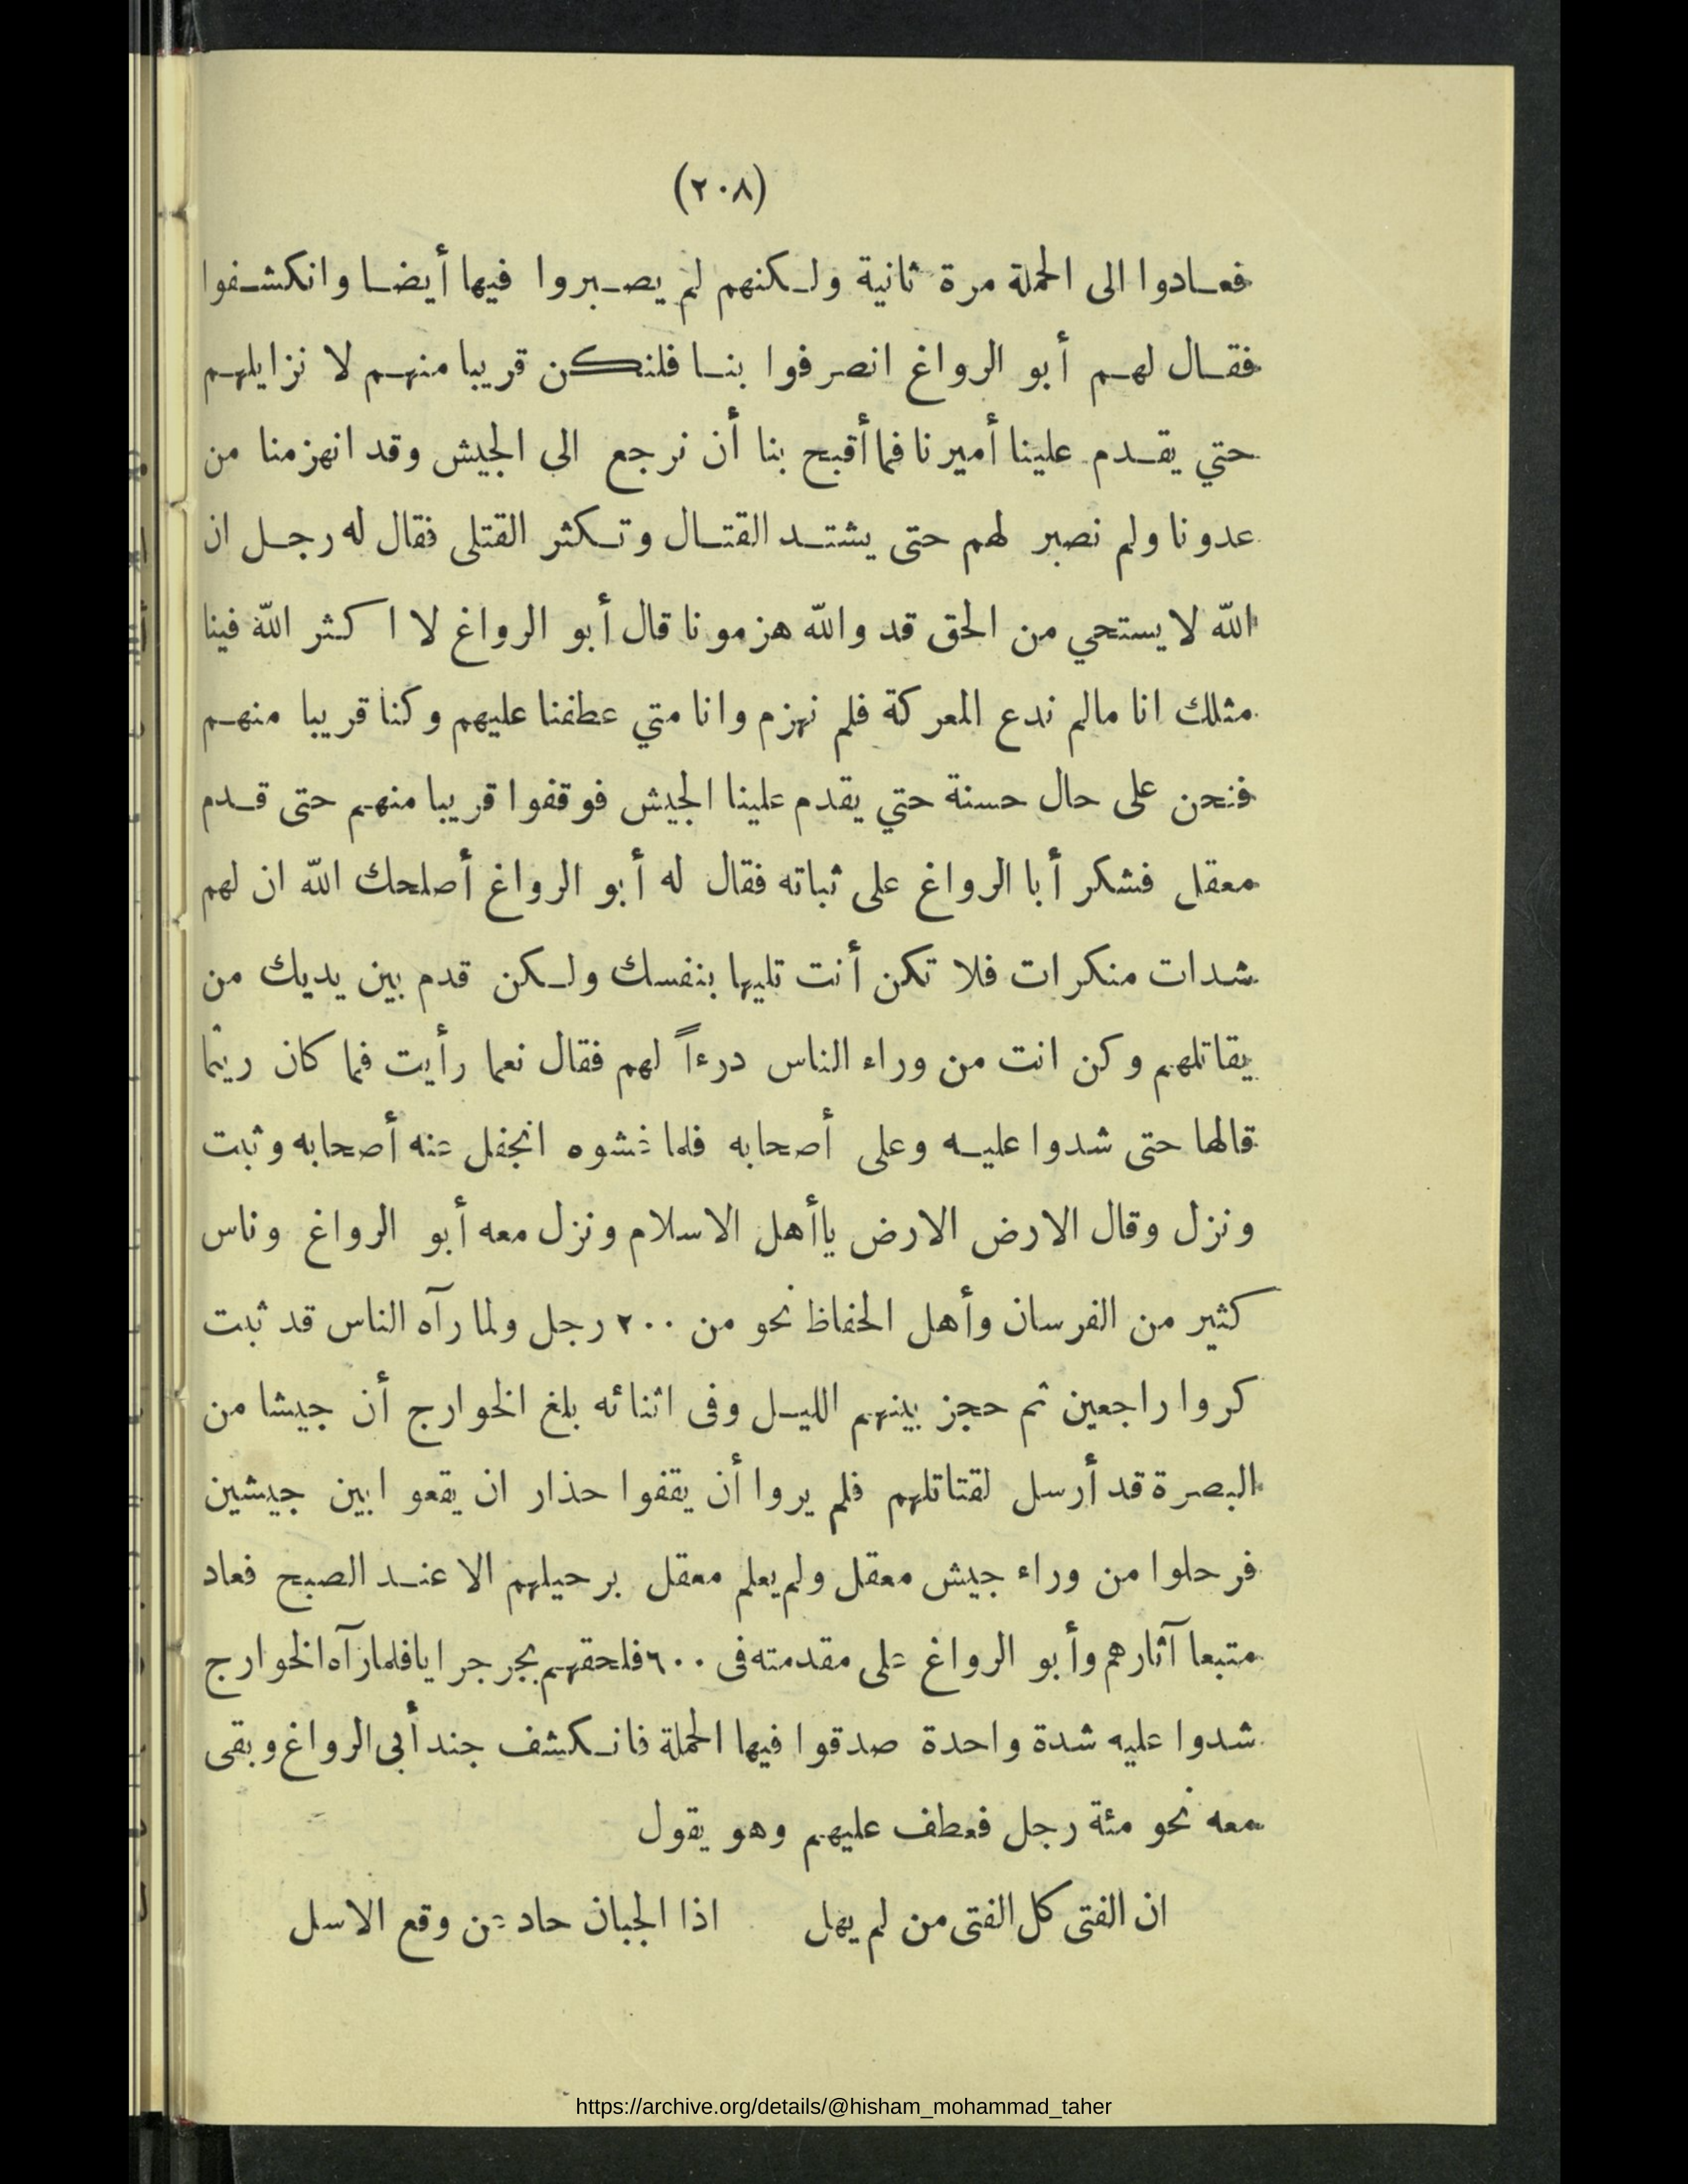 (٢٠٨)
فعادوا الى الحملة مرة ثانية ولكنهم لم يصبروا فيها أيضا وانكشفوا
فقال لهم أبو الرواغ انصرفوا بنا فلنكن قريبا منهم لا نزايلهم
حتي يقدم علينا أميرنا فما أقبح بنا أن نرجع الى الجيش وقد انهزمنا من
عدونا ولم نصبر لهم حتى يشتد القتال وتكثر القتلى فقال له رجل ان
الله لا يستحي من الحق قد والله هزمونا قال أبو الرواغ لا اكثر الله فينا
مثلك انا مالم ندع المعركة فلم نهزم وانا متي عطفنا عليهم وكنا قريبا منهم
فنحن على حال حسنة حتي يقدم علينا الجيش فوقفوا قريبا منهم حتى قدم
معقل فشكر أبا الرواغ على ثباته فقال له أبو الرواغ أصلحك الله ان لهم
شدات منكرات فلا تكن أنت تليها بنفسك ولكن قدم بين يديك من
يقاتلهم وكن انت من وراء الناس درءاً لهم فقال نعما رأيت فما كان ريثما
قالها حتى شدوا عليه وعلى أصحابه فلما غشوه انجفل عنه أصحابه وثبت
ونزل وقال الارض الارض ياأهل الاسلام ونزل معه أبو الرواغ وناس
كثير من الفرسان وأهل الحفاظ نحو من ٢٠٠ رجل ولما رآه الناس قد ثبت
كروا راجعين ثم حجز بينهم الليل وفى اثنائه بلغ الخوارج أن جيشا من
البصرة قد أرسل لقتاتلهم فلم يروا أن يقفوا حذار ان يقعو ابين جيشين
فرحلوا من وراء جيش معقل ولم يعلم معقل برحيلهم الا عند الصبح فعاد
متبعا آثارهم وأبو الرواغ على مقدمته فى ٦٠٠ فلحقهم بجرجرايا فلما رآه الخوارج
شدوا عليه شدة واحدة صدقوا فيها الحملة فانكشف جند أبى الرواغ وبقى
معه نحو مئة رجل فعطف عليهم وهو يقول
ان الفتى كل الفتى من لم يهل اذا الجبان حاد عن وقع الاسل
https://archive.org/details/@hisham_mohammad_taher